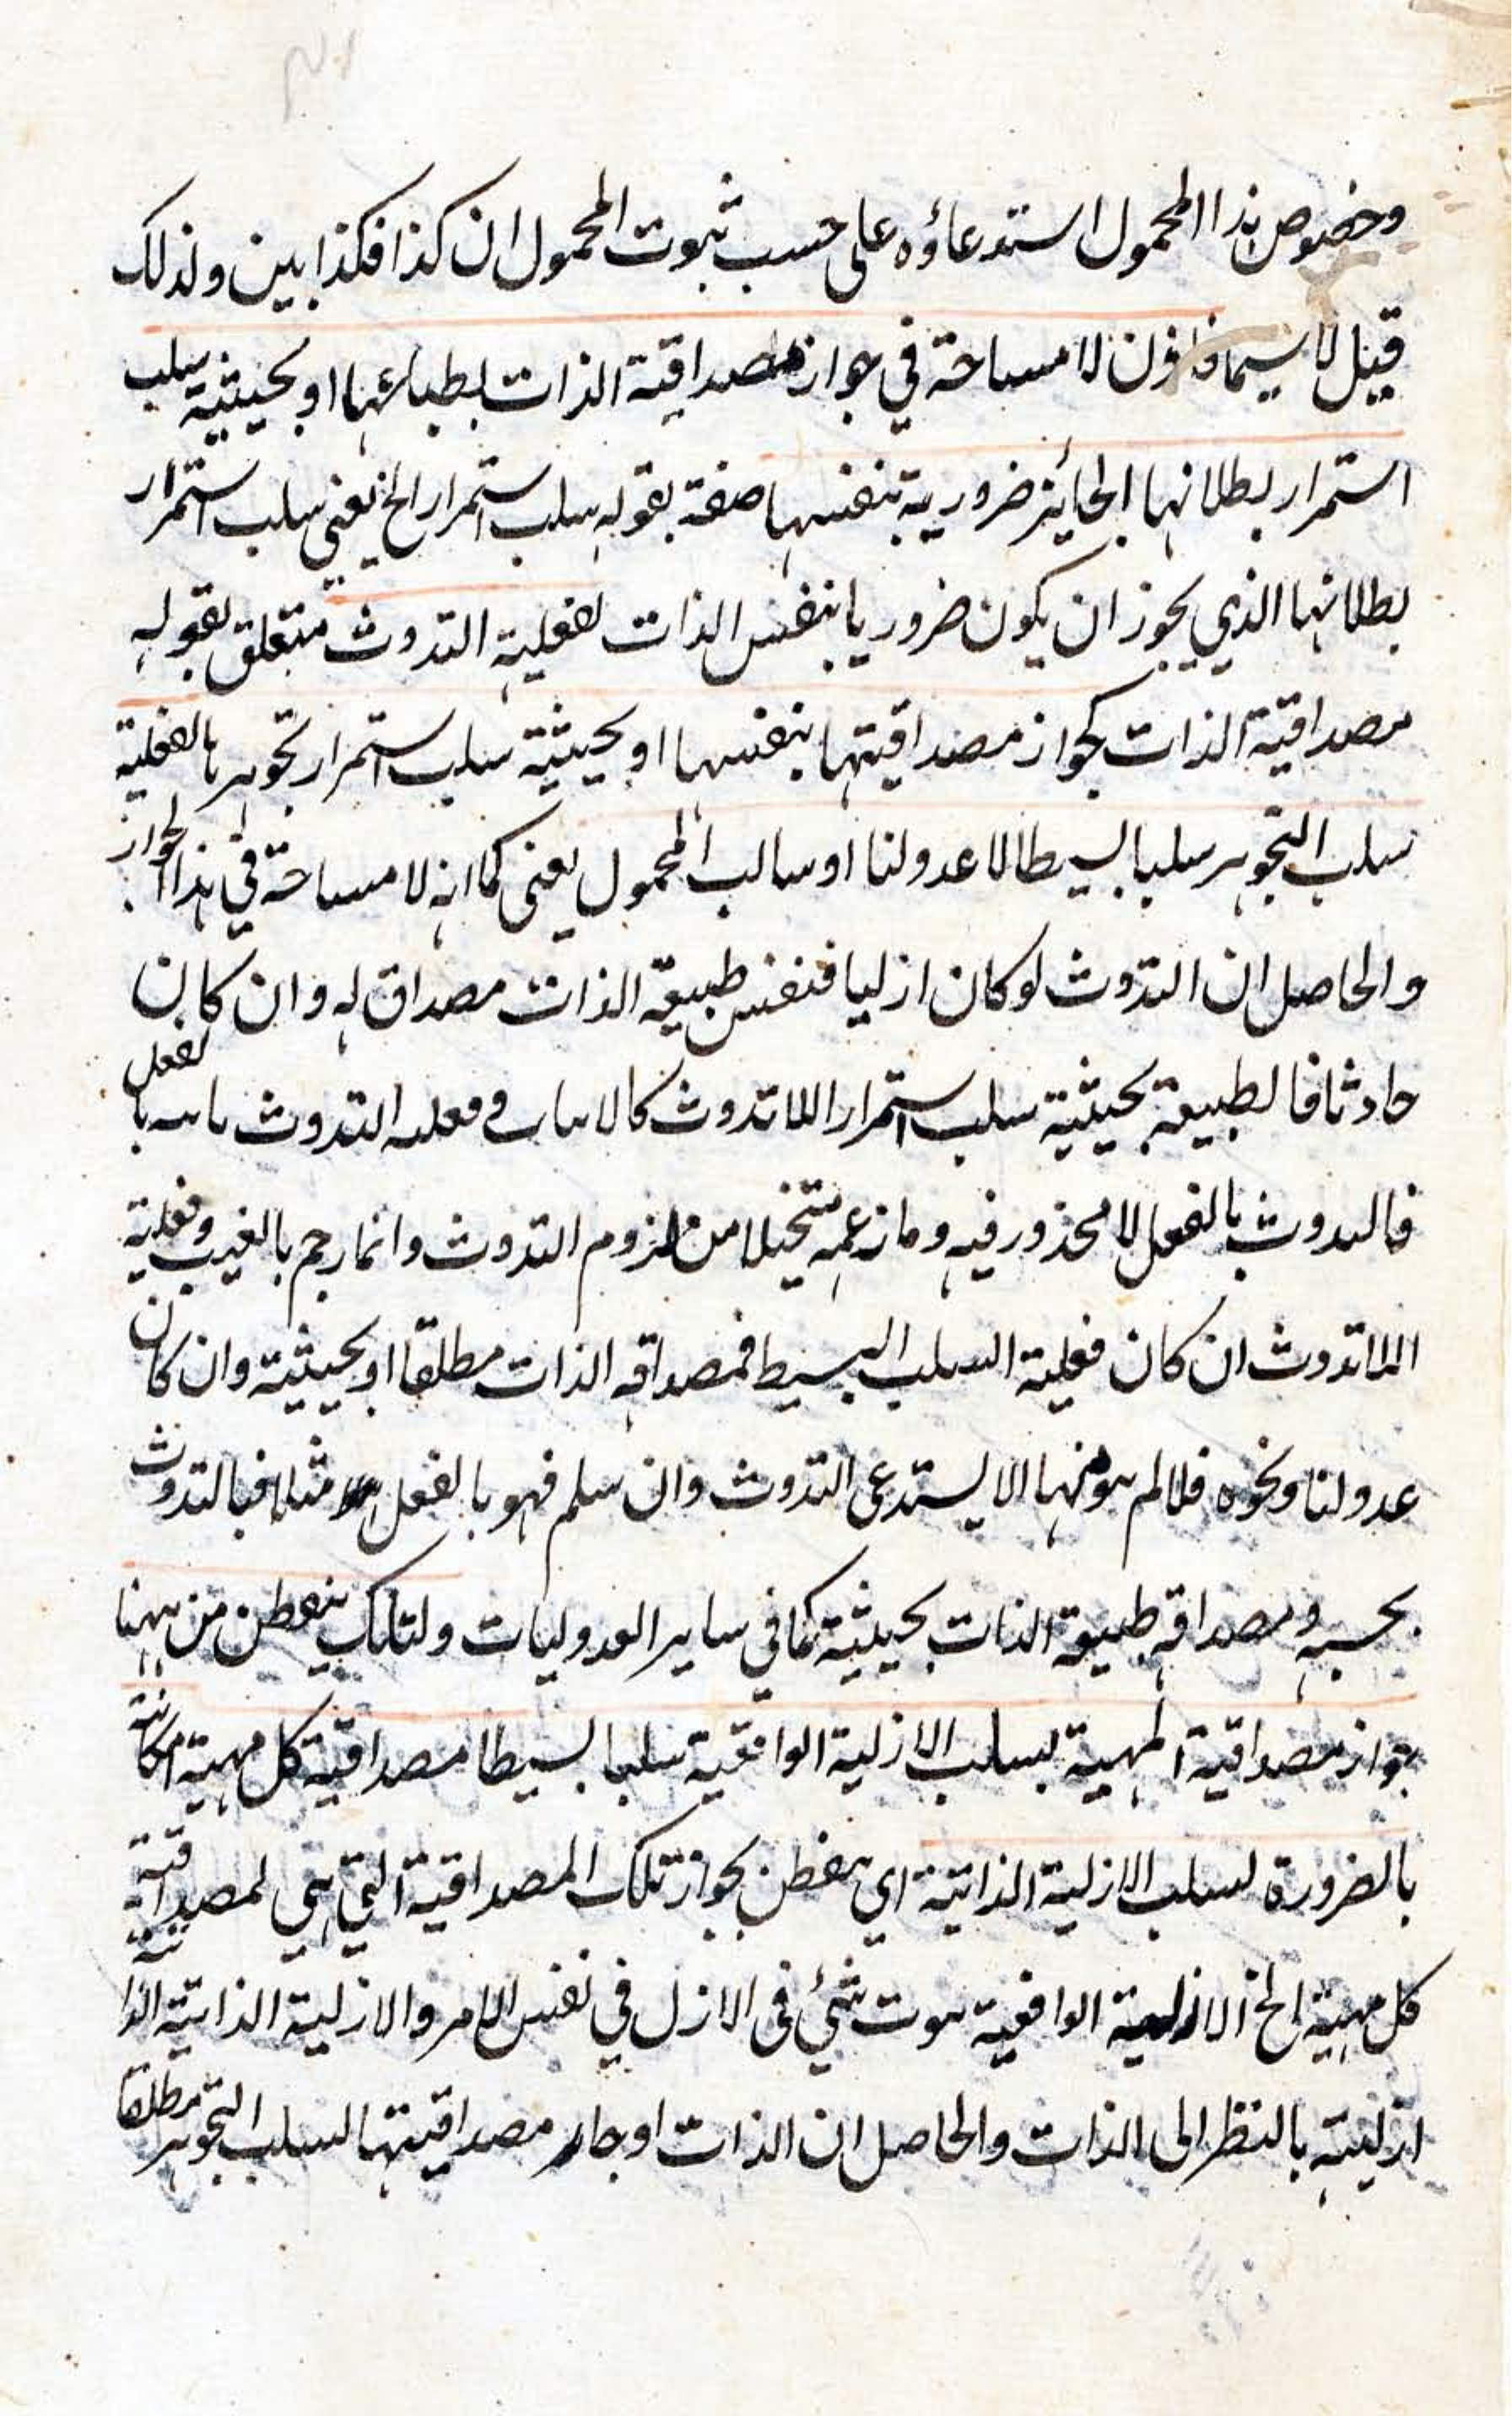 وخصوص هذا المحمول استدعاؤه على حسب ثبوت المحمول ان كذا فكذا بين ولذلك
قيل لا سيما فاذن لا مساحة في جواز مصداقية الذات بطباعها او بحيثية سلب
استمرار بطلانها الجائز ضرورية بنفسها صفة بقوله سلب استمرار الخ يعني سلب استمرار
بطلانها الذي يجوز ان يكون ضروريا بنفس الذات لفعلية التذوث متعلق بقوله
مصداقية الذات كجواز مصداقيتها بنفسها او بحيثية سلب استمرار تجوهرها لفعلية
سلب التجوهر سلبا بسيطا لا عدولنا او سالب المحمول يعنى كما انه لا مساحة في هذا الجواز
والحاصل ان التذوث لو كان ازليا فنفس طبيعة الذات مصداق له وان كان
حادثا فالطبيعة بحيثية سلب استمرار اللاتذوث التذوث بالفعل
فالتذوث بالفعل لا محذور فيه وما زعمه متخيلا من لزوم التذوث وانما رجم بالغيب وفعلية
اللاتذوث ان كان فعلية السلب البسيط فمصداقه الذات مطلقا او بحيثية وان كان
عدولنا ونحوه فلا لم هو منها الا يستدعى التذوث وان سلم فهو بالفعل مثلا فبالتذوث
بحسبه ومصداقه طبيعة الذات بحيثية كما في ساير العدوليات ولتلك يتفطن من ههنا
بجواز مصداقية المهية بسلب الازلية الواقعية سلبا بسيطا مصداقية كل مهية امكانية
بالضرورة لسلب الازلية الذاتية اي يتفطن بجواز تلك المصداقية التي هي لمصداقية
كل مهية الخ الازلية الواقعية ثبوت شئ في الازل في نفس الامر والازلية الذاتية
ازليته بالنظر الى الذات والحاصل ان الذات او جاز مصداقيتها لسلب التجوهر مطلقا